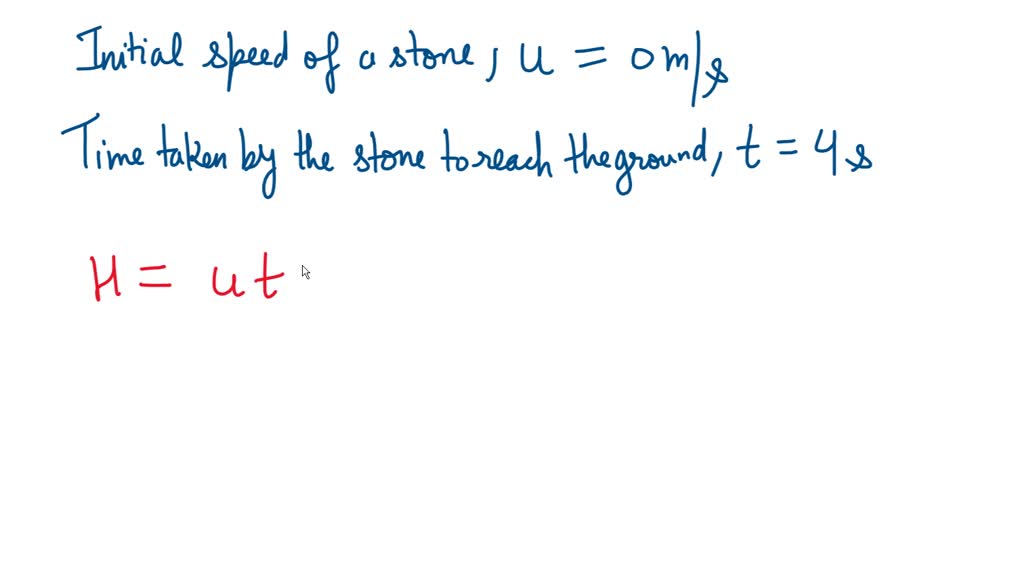 Initial speed of a stone, u = 0 m/s
Time taken by the stone to reach the ground, t = 4 s
H = ut